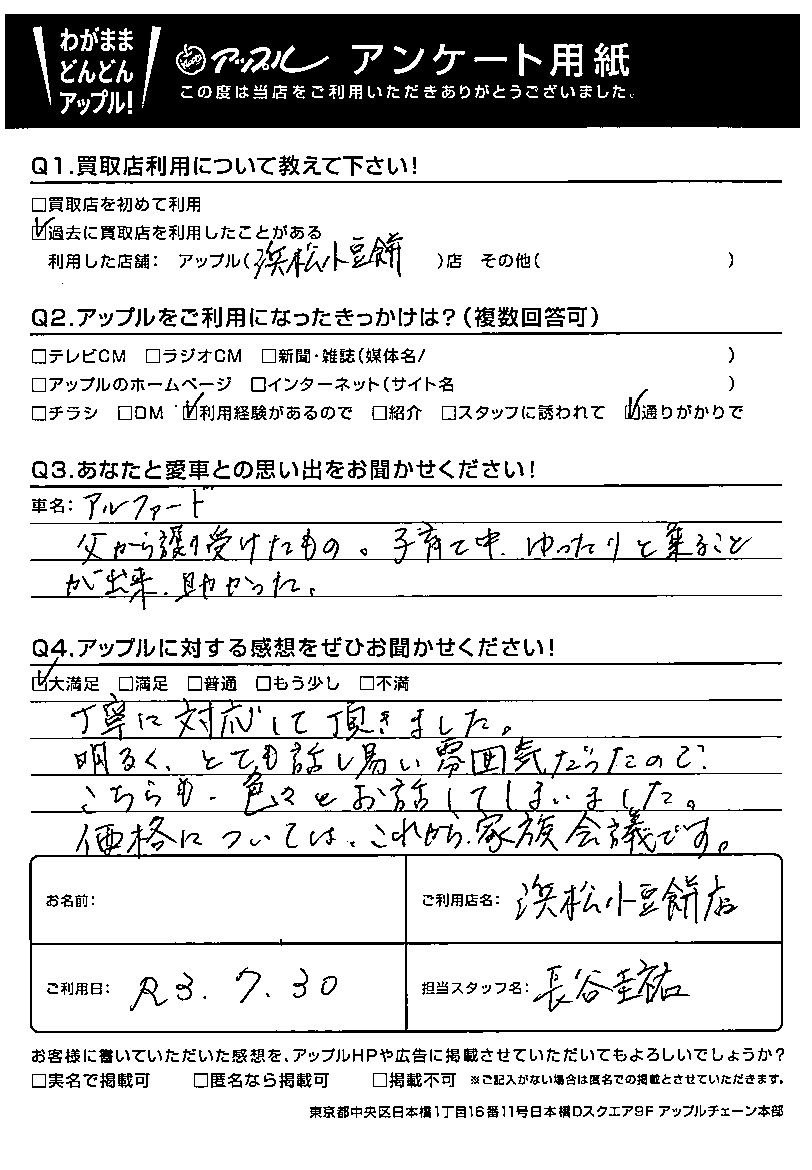 わがまま
どんどん
アップル!
アップル アンケート用紙
この度は当店をご利用いただきありがとうございました。
Q1.買取店利用について教えて下さい!
□買取店を初めて利用
☑過去に買取店を利用したことがある
利用した店舗: アップル(浜松小豆餅 )店 その他( )
Q2.アップルをご利用になったきっかけは?(複数回答可)
□テレビCM □ラジオCM □新聞・雑誌(媒体名/ )
□アップルのホームページ □インターネット(サイト名 )
□チラシ □DM ☑利用経験があるので □紹介 □スタッフに誘われて ☑通りがかりで
Q3.あなたと愛車との思い出をお聞かせください!
車名: アルファード
父から譲り受けたもの。子育て中、ゆったりと乗ること
が出来、助かった。
Q4.アップルに対する感想をぜひお聞かせください!
☑大満足 □満足 □普通 □もう少し □不満
丁寧に対応して頂きました。
明るく、とても話し易い雰囲気だったので、
こちらも、色々とお話してしまいました。
価格については、これから、家族会議です。
お名前:
ご利用店名: 浜松小豆餅店
ご利用日: R3.7.30
担当スタッフ名: 長谷圭祐
お客様に書いていただいた感想を、アップルHPや広告に掲載させていただいてもよろしいでしょうか?
□実名で掲載可 □匿名なら掲載可 □掲載不可 ※ご記入がない場合は匿名での掲載とさせていただきます。
東京都中央区日本橋1丁目16番11号日本橋Dスクエア9F アップルチェーン本部